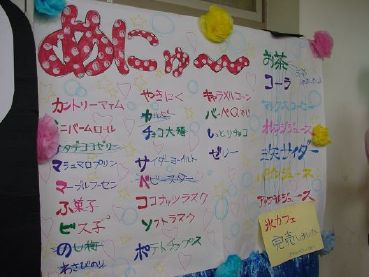 めにゅ〜
カントリーマァム
ミニバームロール
マシュマロプリン
ふ菓子
ビス子
のし梅
わさびのり
やきにく
チョコ大福
サイダーモイルト
ベビースター
ココナッツラスク
ソフトラスク
ポテトチップス
キャラメルコーン
バーベQあじ
しっとりチョコ
ゼリー
お茶
コーラ
マックスコーヒー
オレンジジュース
三ツ矢サイダー
パインジュース
アップルジュース
氷カフェ
完売しました